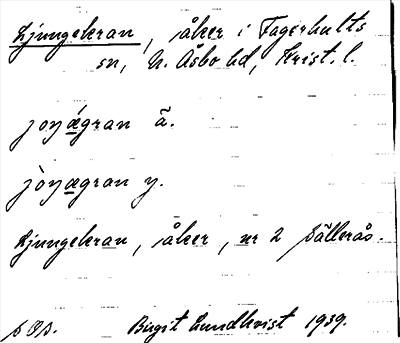 Ljungekran, åker i Fagerhults
sn, N. Åsbo hd, Krist. l.
joŋǽgran ã.
jòŋægran y.
Ljungekran, åker, nr 2 Källerås.
Birgit Lundkvist 1939.